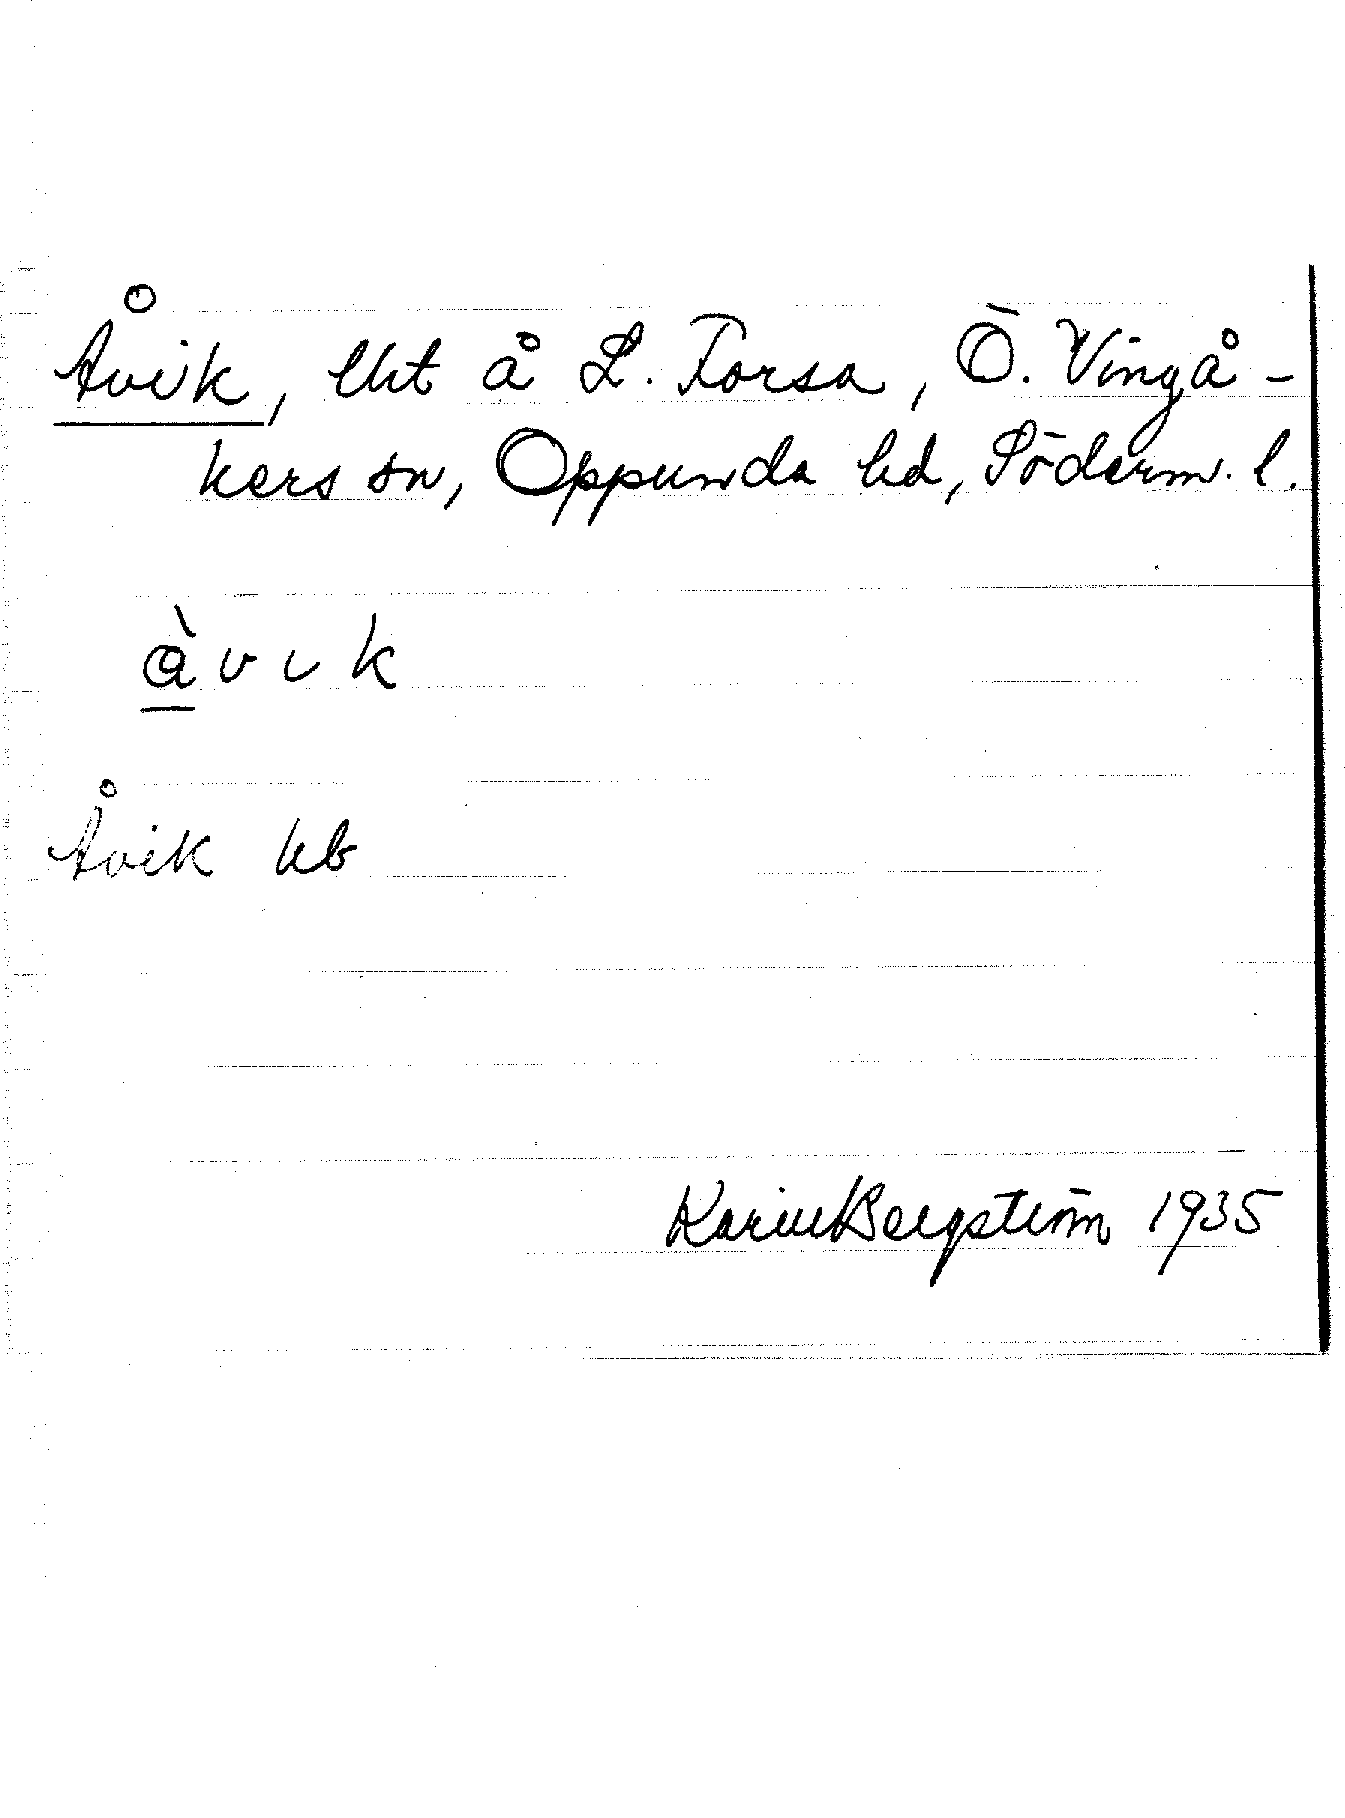 Åvik, lht å L. Forsa, Ö. Vingå-
kers sn, Oppunda hd, Söderm. l.
å̀vik
Åvik kb
Karin Bergström 1935